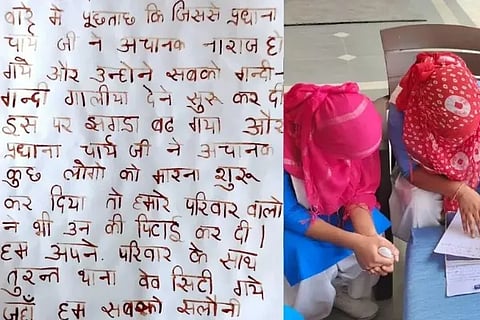 बारे में पूछताछ कि जिससे प्रधाना
चार्य जी ने अचानक नाराज हो
गये और उन्होने सबको गन्दी-
गन्दी गालीया देने सुरू कर दी
इस पर झगड़ा बढ गया और
प्रधाना चार्य जी ने अचानक
कुछ लोगो को मारना शुरू
कर दिया तो हमारे परिवार वालो
ने भी उन की पिटाई कर दी।
हम अपने परिवार के साथ
तुरन्त थाना वेव सिटी गये
जहाँ हम सबको सलोनी